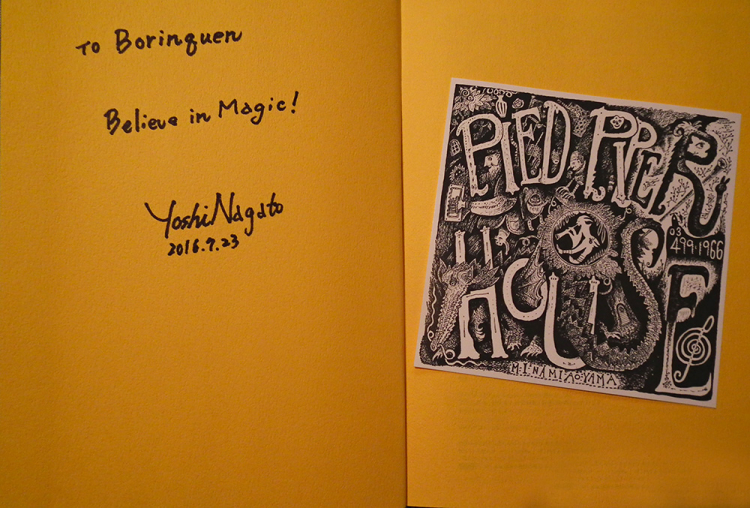 To Borinquen
Believe in Magic!
Yoshi Nagato
2016.7.23
PIED PIPER
HOUSE
03
499・1966
M・I・NAMI・AO・YAMA